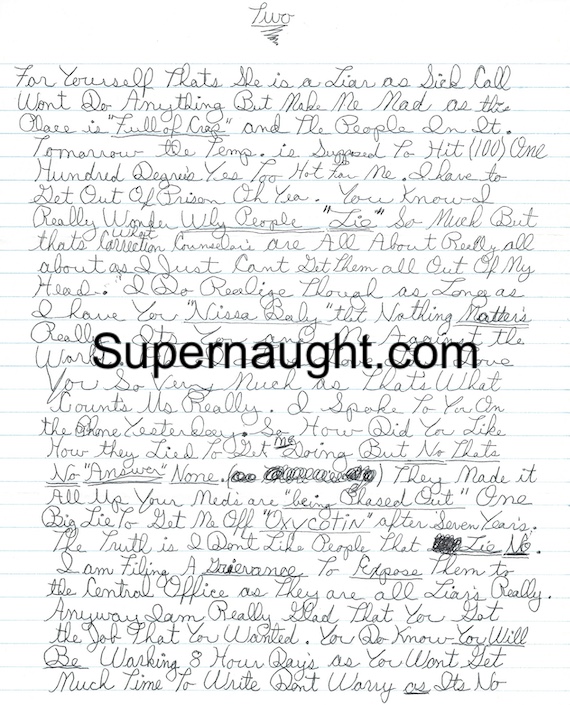 Two
For Yourself Thats She is a Liar as Sick Call
Wont Do Anything But Make Me Mad as the
Place is "Full of Crap" and The People In It.
Tomarrow the Temp. is Supposed To Hit (100) One
Hundred Degre's Yes Too Hot For Me. I have to
Get Out Of Prison Oh Yea. You Know I
Really Wonder Why People "Lie" So Much But
thats What Correction Counselar's are All About Really all
about as I Just Cant Get Them all Out Of My
Head. I Do Realize Though as Long as
I have You "Nissa Baby" that Nothing Matter's
Really Its You and Me Against the
Supernaught.com
You So Very Much as Thats What
Counts Us Really. I Spoke To You On
the Phone Yesterday. So How Did You Like
How they Lied To Get Me Going But No Thats
No "Answer" None. They Made it
All Up Your Meds are "being Phased Out" One
Big Lie To Get Me Off "OXYCOTIN" after Seven Year's.
The Truth is I Dont Like People That Lie No.
I am Filing A Grievance To Expose Them to
the Central Office as They are all Liar's Really.
Anyway I am Really Glad That You Got
the Job That You Wanted. You Do Know You Will
Be Working 8 Hour Day's as You Wont Get
Much Time To Write Dont Worry as Its No